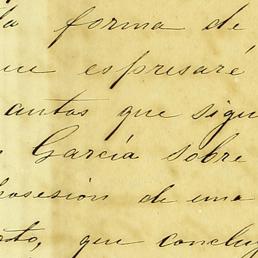 la forma de
que espresaré
autos que sigue
García sobre
posesión de una
que concluy